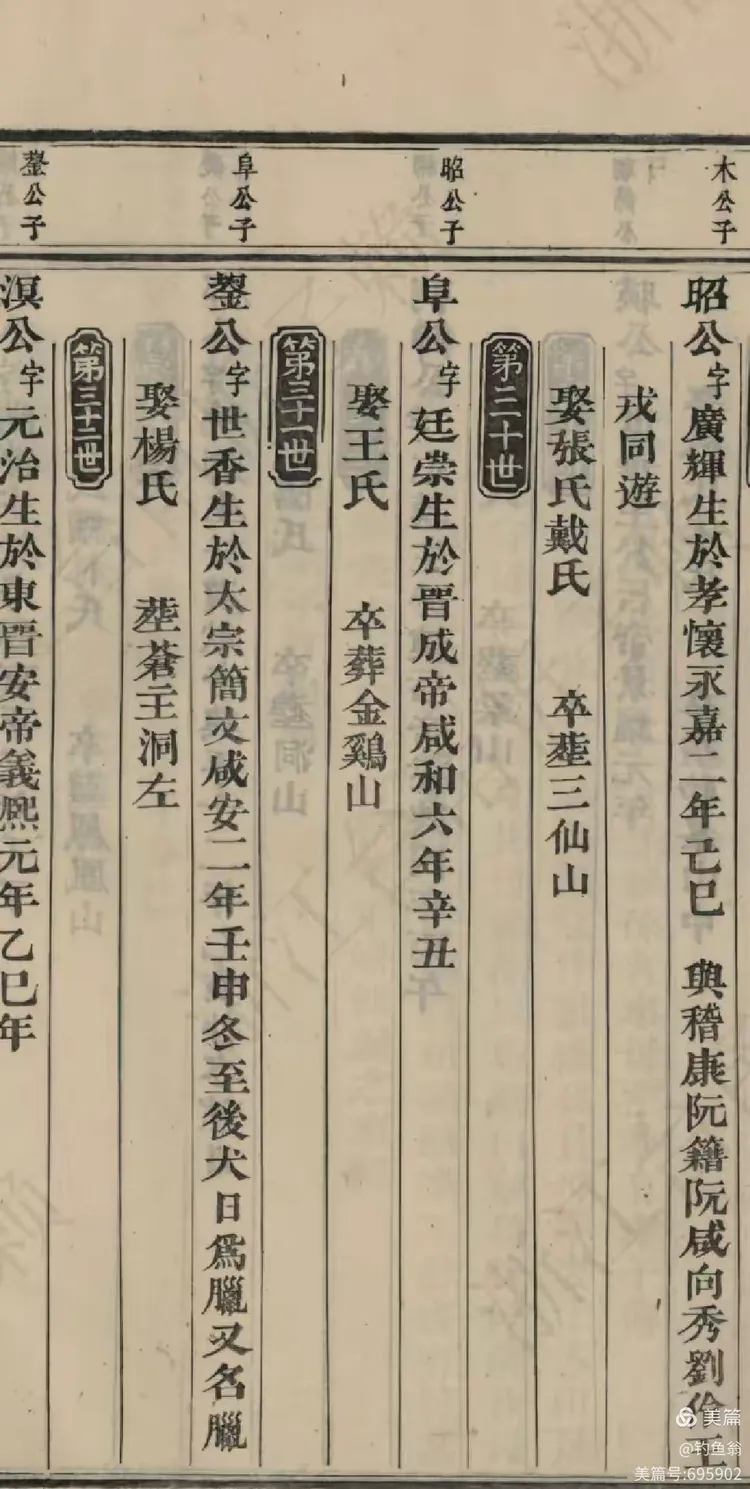 木公子
昭公字廣輝生於孝懷永嘉二年己巳 與稽康阮籍阮咸向秀劉伶王
戎同遊
娶張氏戴氏 卒塟三仙山
第二十世
昭公子
阜公字廷崇生於晉成帝咸和六年辛丑
娶王氏 卒葬金鷄山
第三十一世
阜公子
蓥公字世香生於太宗簡文咸安二年壬申冬至後犬日爲臘又名臘
娶楊氏 塟蒼主洞左
第三十二世
蓥公子
溟公字元治生於東晉安帝義熙元年乙巳年
美篇
@钓鱼翁
美篇号:695902